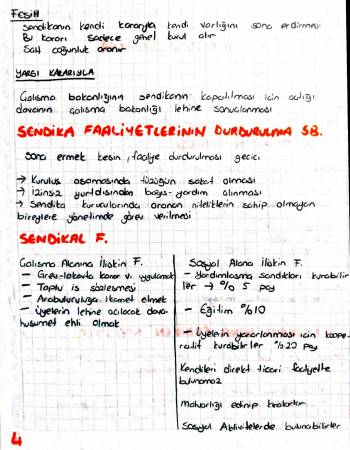 Fesih
Sendikanın kendi kararıyla kendi varlığını sona erdirmesi
Bu kararı sadece genel kurul alır
Salt çoğunluk aranır
YARGI KARARIYLA
Çalışma bakanlığının sendikanın kapatılması için açtığı
davanın çalışma bakanlığı lehine sonuçlanması
SENDİKA FAALİYETLERİNİN DURDURULMA SB.
Sona ermek kesin, faaliye durdurulması geçici
→ Kuruluş aşamasında tüzüğün sakat olması
→ İzinsiz yurtdışından bağış-yardım alınması
→ Sendika kurucularında aranan niteliklerin sahip olmayan
bireylere yönetimde görev verilmesi
SENDİKAL F.
Çalışma Alanına İlişkin F.
- Grev-lokavta karar v. uygulamak
- Toplu iş sözleşmesi
- Arabuluculuğa ikamet etmek
- Üyelerin lehine açılacak dava
husumet ehli olmak
Sosyal Alana İlişkin F.
- Yardımlaşma sandıkları kurabilir
ler → %5 pay
- Eğitim %10
- Üyelerin yararlanması için koope
ratif kurabilirler %20 pay
Kendileri direkt ticari faaliyette
bulunamaz
Malvarlığı edinip kiralarlar
Sosyal Aktivitelerde bulunabilirler
4